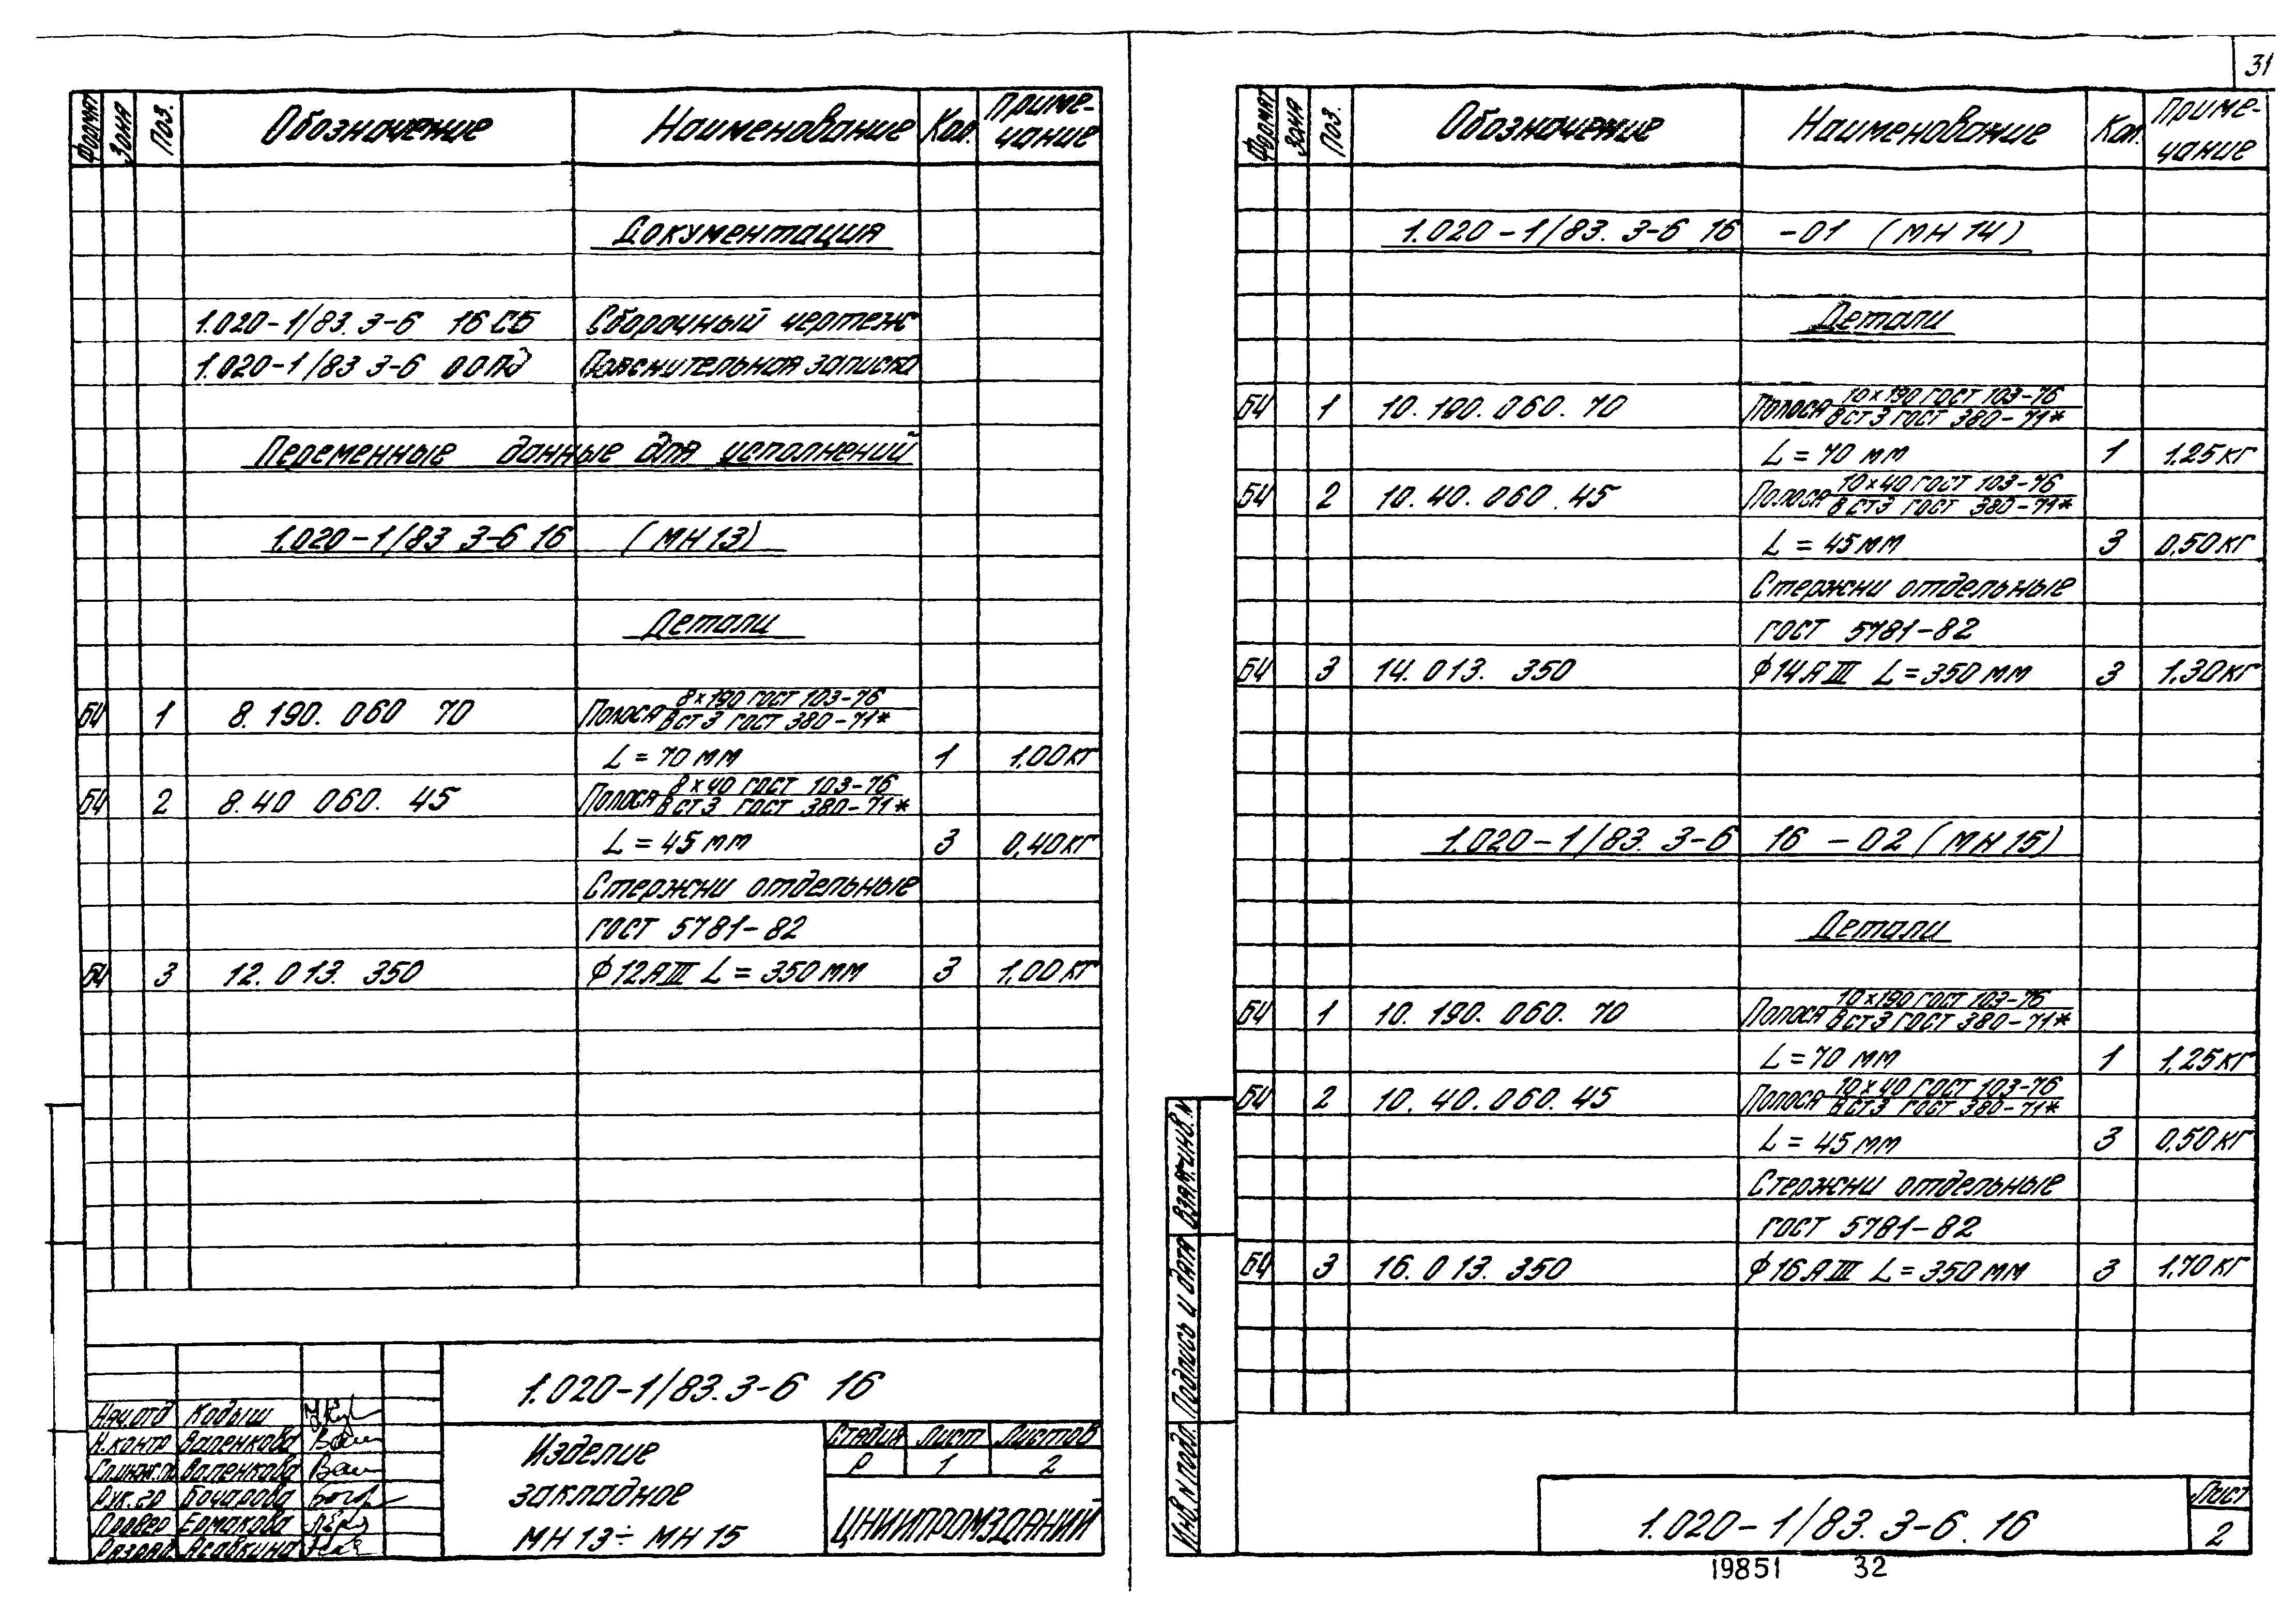 31
Формат Зона Поз. Обозначение Наименование Кол. Приме-
чание
Документация
1.020-1/83. 3-6 16 СБ Сборочный чертеж
1.020-1/83 3-6 00ПЗ Пояснительная записка
Переменные данные для исполнений
1.020-1/83 3-6 16 (МН 13)
Детали
БЧ 1 8. 190. 060 70 Полоса 8×190 ГОСТ 103-76
ВСт3 ГОСТ 380-71*
L = 70 мм 1 1,00кг
БЧ 2 8. 40 060. 45 Полоса 8×40 ГОСТ 103-76
ВСт3 ГОСТ 380-71*
L = 45 мм 3 0,40кг
Стержни отдельные
ГОСТ 5781-82
БЧ 3 12. 013. 350 ф12АIII L = 350 мм 3 1,00 кг
1.020-1/83. 3-6 16
Нач.отд Кодыш
Н.контр Валенкова
Гл.инж.п. Валенкова
Рук.гр Бочарова
Провер Ермакова
Разраб.
Изделие
закладное
МН 13÷ МН 15
Стадия Лист Листов
Р 1 2
ЦНИИПРОМЗДАНИЙ
Формат Зона Поз. Обозначение Наименование Кол. Приме-
чание
1.020-1/83. 3-6 16 -01 (МН 14)
Детали
БЧ 1 10. 190. 060. 70 Полоса 10×190 ГОСТ 103-76
ВСт3 ГОСТ 380-71*
L = 70 мм 1 1,25кг
БЧ 2 10. 40. 060 .45 Полоса 10×40 ГОСТ 103-76
ВСт3 ГОСТ 380-71*
L = 45мм 3 0,50кг
Стержни отдельные
ГОСТ 5781-82
БЧ 3 14. 013. 350 ф14АIII L = 350 мм 3 1,30кг
1.020-1/83. 3-6 16 -02 (МН 15)
Детали
БЧ 1 10. 190. 060. 70 Полоса 10×190 ГОСТ 103-76
ВСт3 ГОСТ 380-71*
L = 70 мм 1 1,25кг
БЧ 2 10. 40. 060. 45 Полоса 10×40 ГОСТ 103-76
ВСт3 ГОСТ 380-71*
L = 45 мм 3 0,50кг
Стержни отдельные
ГОСТ 5781-82
БЧ 3 16. 013. 350 ф16АIII L = 350 мм 3 1,70 кг
Взам.инв.N
Подпись и дата
Инв.N подл.
1.020-1/83. 3-6. 16
Лист
2
19851 32